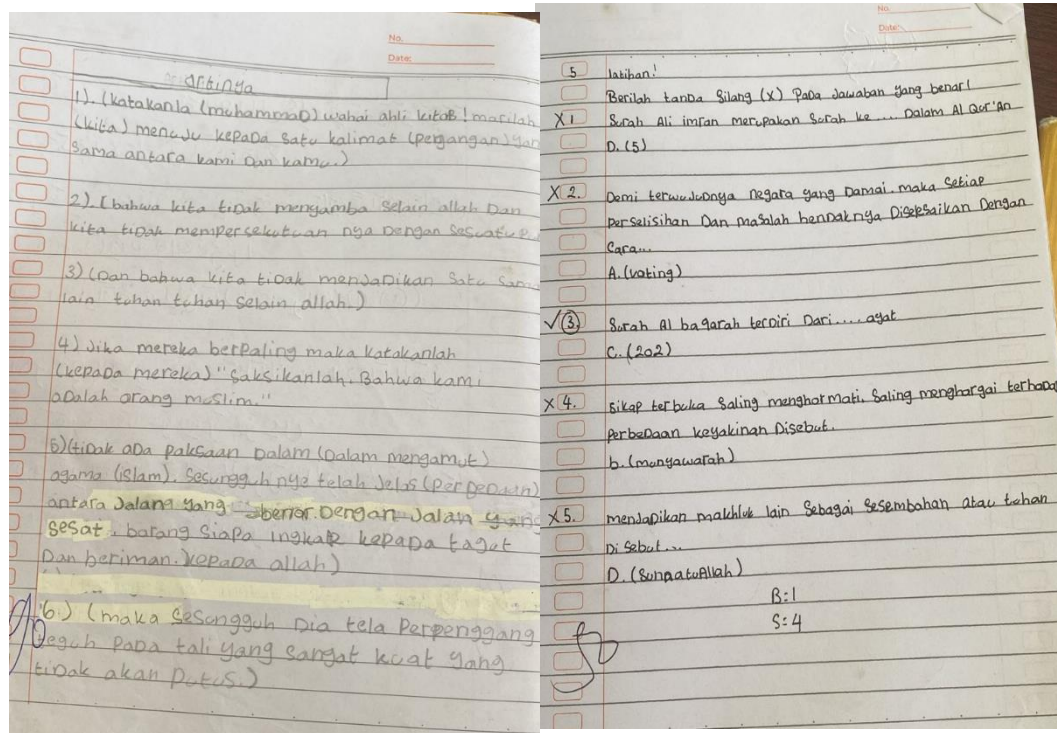 No.
Date:
artinya
1). (katakanla (muhammaD) wahai ahli kitaB! marilah
(kita) menuju kepaDa satu kalimat (pegangan) yan
sama antara kami Dan kamu.)
2) (bahwa kita tiDak mengamba selain allah Dan
kita tiDak mempersekutuan nya Dengan sesuatu
3) (Dan bahwa kita tiDak menJaDikan satu sama
lain tuhan tuhan selain allah.)
4) Jika mereka berpaling maka katakanlah
(kepaDa mereka) "saksikanlah. Bahwa kami
aDalah orang muslim."
5) (tiDak aDa paksaan Dalam (Dalam mengamut)
agama (islam). Sesungguhnya telah Jelas (perbeDaan)
antara Jalang yang benar Dengan Jalan yang
sesat, barang siapa ingkar kepaDa tagut
Dan beriman kepaDa allah)
6.) (maka sesungguh Dia tela perpenggang
teguh paDa tali yang sangat kuat yang
tiDak akan putus.)
No.
Date:
5 latihan!
Berilah tanDa Silang (x) PaDa Jawaban yang benar!
X 1 Surah Ali imran merupakan Surah ke .... Dalam Al Qur'An
D. (5)
X 2. Demi terwuJuDnya negara yang Damai. maka Setiap
perselisihan Dan masalah henDaknya Diselesaikan Dengan
Cara...
A. (voting)
√ 3. Surah Al baqarah terDiri Dari .... ayat
C. (202)
X 4. sikap terbuka Saling menghormati. Saling menghargai terhaDap
perbeDaan keyakinan Disebut.
b. (munyawarah)
X 5. menJaDikan makhluk lain Sebagai Sesembahan atau tuhan
Di Sebut...
D. (SunnatuAllah)
B=1
S=4